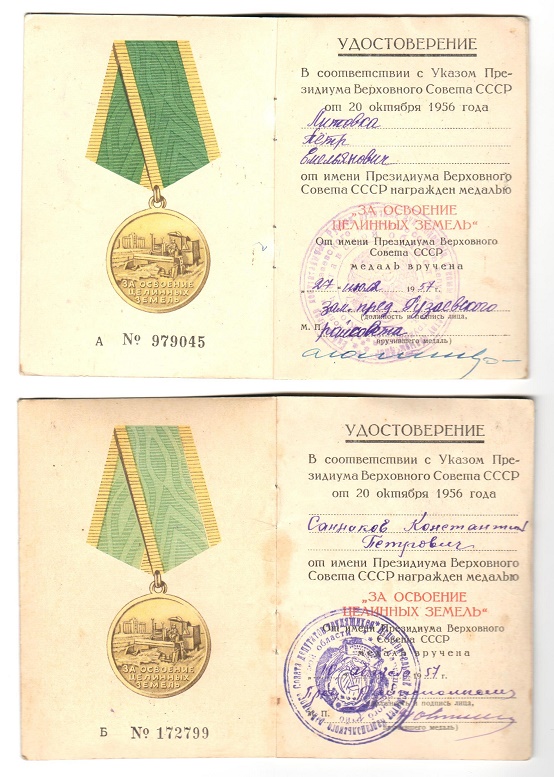 ЗА ОСВОЕНИЕ
ЦЕЛИННЫХ
ЗЕМЕЛЬ
А № 979045
УДОСТОВЕРЕНИЕ
В соответствии с Указом Пре-
зидиума Верховного Совета СССР
от 20 октября 1956 года
Литовка
Пётр
Емельянович
от имени Президиума Верховного
Совета СССР награжден медалью
„ЗА ОСВОЕНИЕ
ЦЕЛИННЫХ ЗЕМЕЛЬ“
От имени Президиума Верховного
Совета СССР
медаль вручена
„27“ июля 1957 г.
зам. пред. Рузаевского
(должность и подпись лица,
М. П. райсовета
вручившего медаль)
ЗА ОСВОЕНИЕ
ЦЕЛИННЫХ
ЗЕМЕЛЬ
Б № 172799
УДОСТОВЕРЕНИЕ
В соответствии с Указом Пре-
зидиума Верховного Совета СССР
от 20 октября 1956 года
Санников Константин
Петрович
от имени Президиума Верховного
Совета СССР награжден медалью
„ЗА ОСВОЕНИЕ
ЦЕЛИННЫХ ЗЕМЕЛЬ“
От имени Президиума Верховного
Совета СССР
медаль вручена
1957 г.
и подпись лица,
П.
медаль)